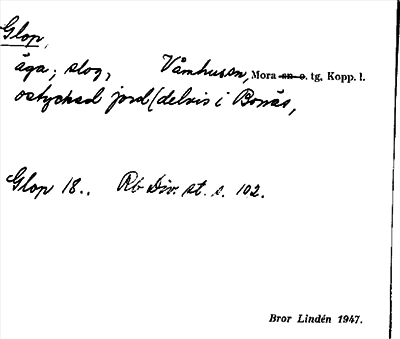 Glop,
äga; slog, Våmhusen, Mora sn o. tg, Kopp. l.
ostyckad jord (delvis i Bonäs,
Glop 18.. Rb Div. st. s. 102.
Bror Lindén 1947.